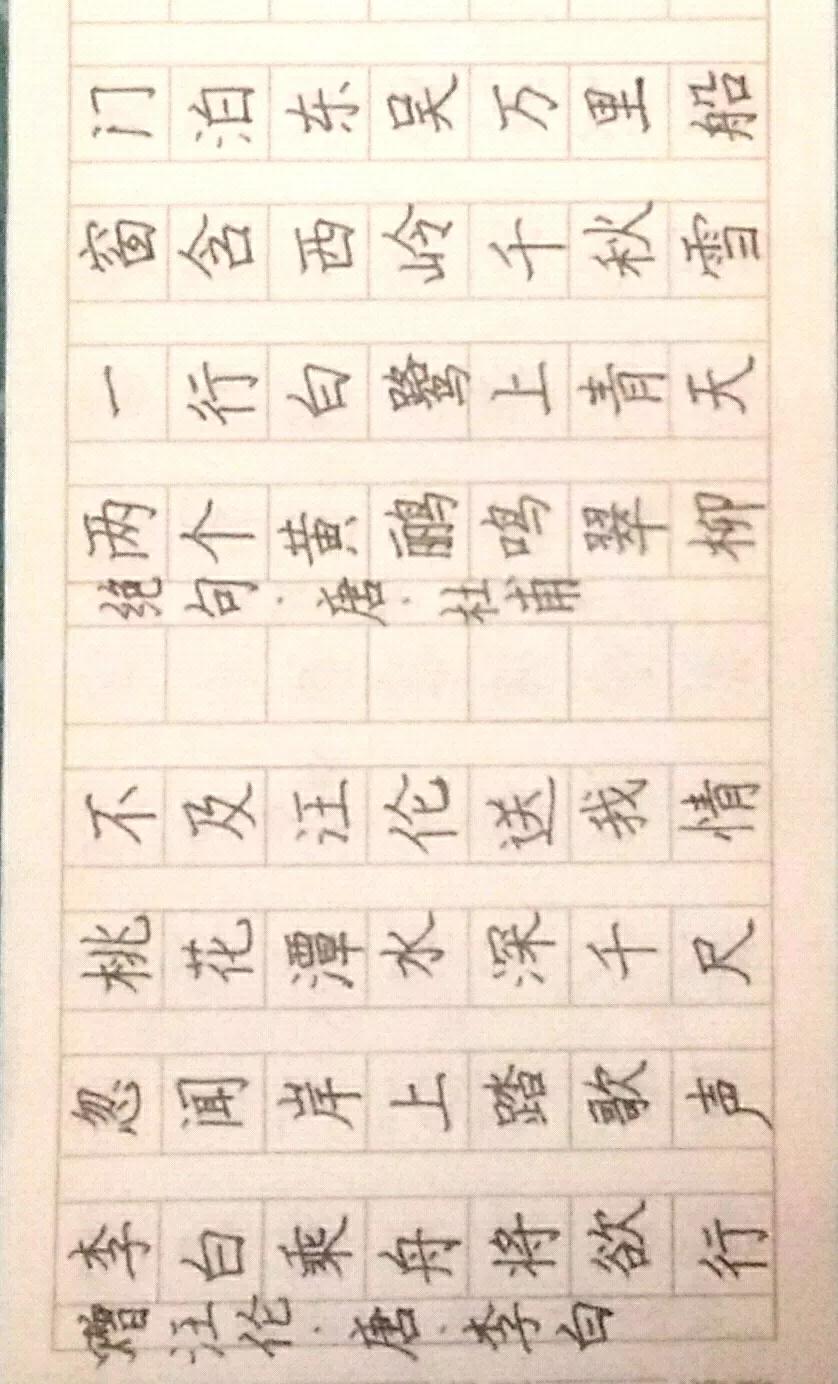 赠汪伦·唐·李白
李白乘舟将欲行
忽闻岸上踏歌声
桃花潭水深千尺
不及汪伦送我情
绝句·唐·杜甫
两个黄鹂鸣翠柳
一行白鹭上青天
窗含西岭千秋雪
门泊东吴万里船